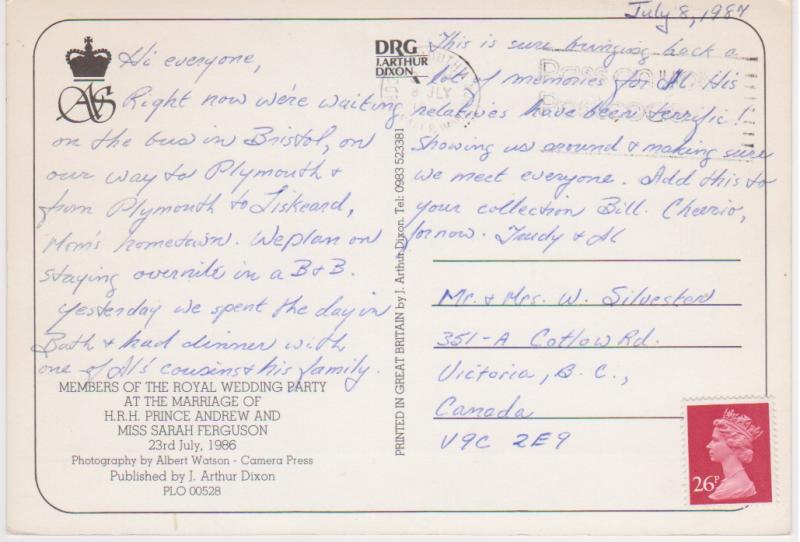 July 8, 1987
Hi everyone,
Right now we're waiting
on the bus in Bristol, on
our way to Plymouth &
from Plymouth to Liskeard,
Mom's hometown. We plan on
staying overnite in a B+B.
Yesterday we spent the day in
Bath & had dinner with
one of Al's cousins & his family.
MEMBERS OF THE ROYAL WEDDING PARTY
AT THE MARRIAGE OF
H.R.H. PRINCE ANDREW AND
MISS SARAH FERGUSON
23rd July, 1986
Photography by Albert Watson - Camera Press
Published by J. Arthur Dixon
PLO 00528
DRG
J. ARTHUR
DIXON
PRINTED IN GREAT BRITAIN by J. Arthur Dixon. Tel: 0983 523381
This is sure bringing back a
lot of memories for Al. His
relatives have been terrific!
Showing us around & making sure
we meet everyone. Add this to
your collection Bill. Cheerio,
for now. Trudy & Al
Mr. & Mrs. W. Silvester
351-A Cotlow Rd.
Victoria, B.C.,
Canada
V9C 2E9
8 JLY
26P